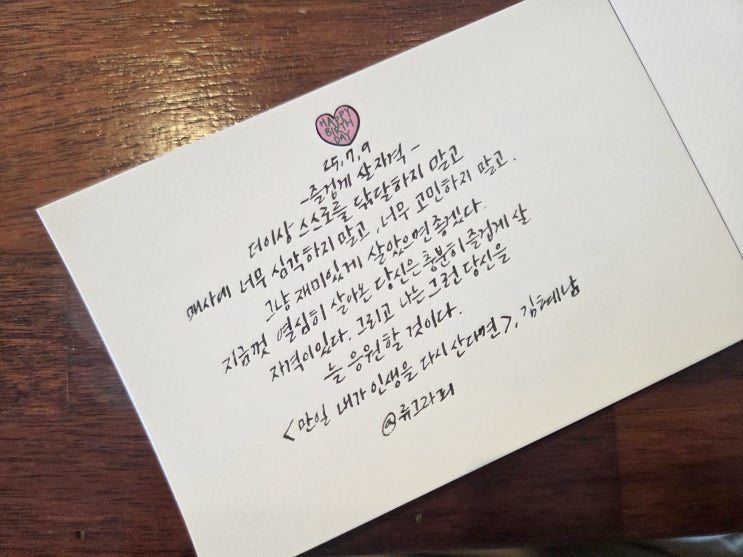 HAPPY
BIRTH
DAY
25.7.9
-즐겁게 살 자격-
더이상 스스로를 닦달하지 말고
매사에 너무 심각하지 말고, 너무 고민하지 말고.
그냥 재미있게 살았으면 좋겠다.
지금껏 열심히 살아온 당신은 충분히 즐겁게 살
자격이있다. 그리고 나는 그런 당신을
늘 응원할 것이다.
<만일 내가 인생을 다시 산다면>, 김혜남
@류그라피